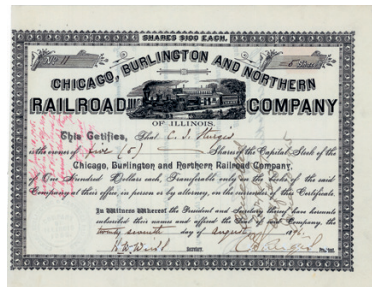 SHARES $100 EACH.
No 11
5 Shares
CHICAGO, BURLINGTON AND NORTHERN
RAILROAD COMPANY
OF ILLINOIS.
This Certifies, That C. I. Sturgis
is the owner of five (5) Shares of the Capital Stock of the
Chicago, Burlington and Northern Railroad Company,
of One Hundred Dollars each, Transferable only on the books of the said
Company at their office, in person or by attorney, on the surrender of this Certificate.
In Witness Whereof the President and Secretary thereof have hereunto
subscribed their names and affixed the Seal of said Company, the
twenty seventh day of August
Secretary.
President.